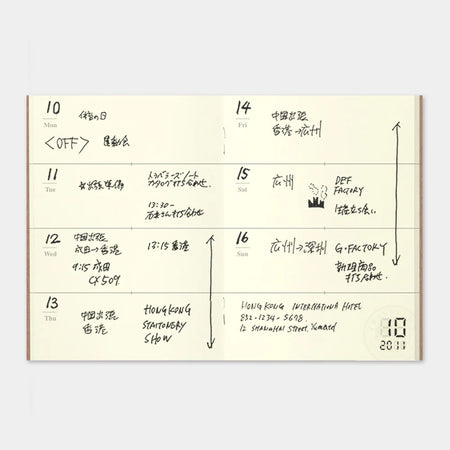 10
Mon
体育の日
<OFF> 運動会
11
Tue
出張準備
トラベラーズノート
カタログ打ち合わせ.
13:30-
石井さん打ち合わせ
12
Wed
中国出張
成田→香港
9:15 成田
CX509
13:15 香港
13
Thu
中国出張
香港
HONGKONG
STATIONERY
SHOW
14
Fri
中国出張
香港→広州
15
Sat
広州
DEF
FACTORY
16
Sun
広州→深圳
G・FACTORY
新規商品
打ち合わせ.
HONG KONG INTERNATIONAL HOTEL
852-1234-5678.
12 SHANGHAI Street,
10
2011